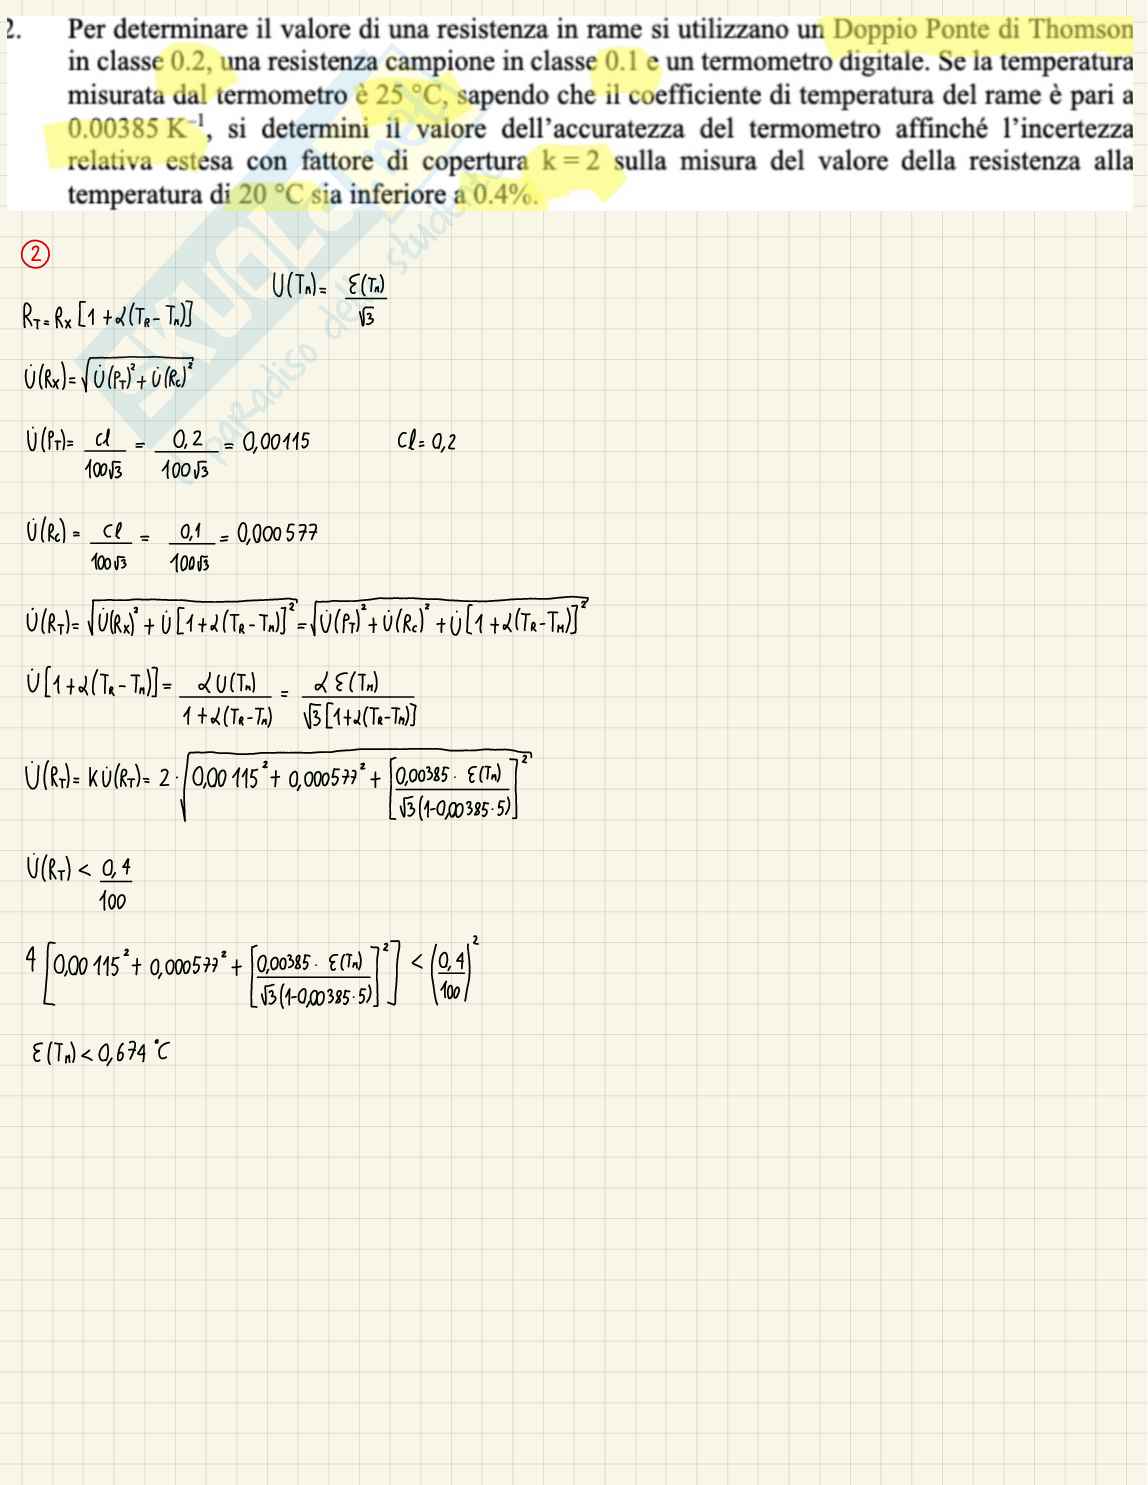 2. Per determinare il valore di una resistenza in rame si utilizzano un Doppio Ponte di Thomson
in classe 0.2, una resistenza campione in classe 0.1 e un termometro digitale. Se la temperatura
misurata dal termometro è 25 °C, sapendo che il coefficiente di temperatura del rame è pari a
0.00385 K⁻¹, si determini il valore dell'accuratezza del termometro affinché l'incertezza
relativa estesa con fattore di copertura k = 2 sulla misura del valore della resistenza alla
temperatura di 20 °C sia inferiore a 0.4%.
②
U(Tₘ) = ε(Tₘ)/√3
R_T = Rₓ [1 + α(T_R − Tₘ)]
U̇(Rₓ) = √(U̇(P_T)² + U̇(R_c)²)
U̇(P_T) = cl/(100√3) = 0,2/(100√3) = 0,00115 Cl = 0,2
U̇(R_c) = cl/(100√3) = 0,1/(100√3) = 0,000577
U̇(R_T) = √(U̇(Rₓ)² + U̇[1+α(T_R−Tₘ)]²) = √(U̇(P_T)² + U̇(R_c)² + U̇[1+α(T_R−T_M)]²)
U̇[1+α(T_R−Tₘ)] = αU(Tₘ)/(1+α(T_R−Tₘ)) = αε(Tₘ)/(√3[1+α(T_R−Tₘ)])
U̇(R_T) = KU̇(R_T) = 2·√(0,00115² + 0,000577² + [0,00385 · ε(Tₘ)/(√3(1−0,00385·5))]²)
U̇(R_T) < 0,4/100
4[0,00115² + 0,000577² + [0,00385 · ε(Tₘ)/(√3(1−0,00385·5))]²] < (0,4/100)²
ε(Tₘ) < 0,674 °C